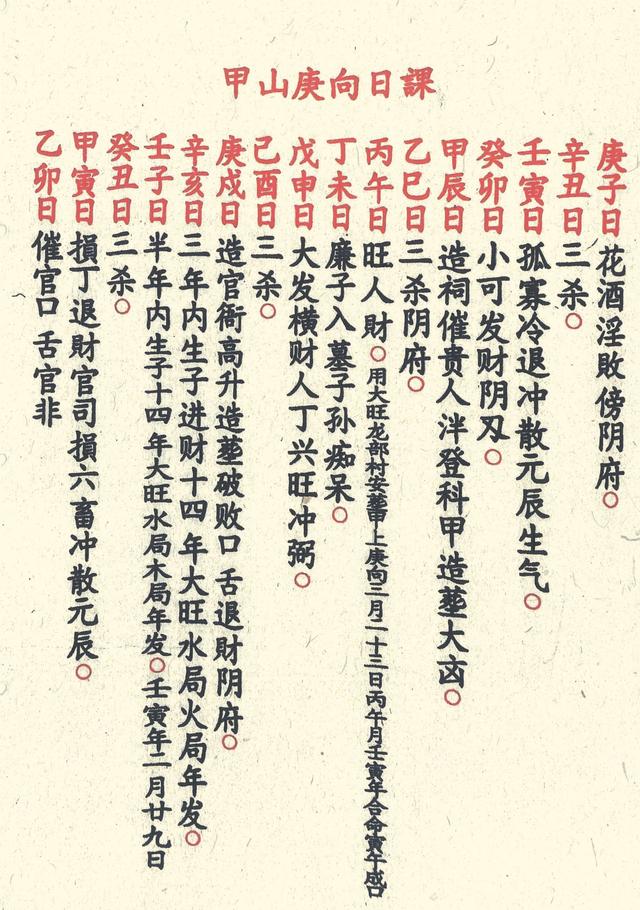 甲山庚向日課
庚子日花酒淫敗傍阴府○
辛丑日三杀○
壬寅日孤寡冷退冲散元辰生气○
癸卯日小可发财阴刄○
甲辰日造祠催贵人泮登科甲造墓大凶○
乙巳日三杀阴府○
丙午日旺人財○用大旺龙部村安墓甲上庚向三月二十三日丙午月壬寅年合命寅午
丁未日廉子入墓子孙痴呆○
戊申日大发横财人丁兴旺冲弼○
己酉日三杀○
庚戍日造官衙高升造墓破败口舌退財阴府○
辛亥日三年内生子进财十四年大旺水局火局年发○
壬子日半年内生子十四年大旺水局木局年发○壬寅年二月廿九日
癸丑日三杀○
甲寅日損丁退財官司損六畜冲散元辰○
乙卯日催官口舌官非